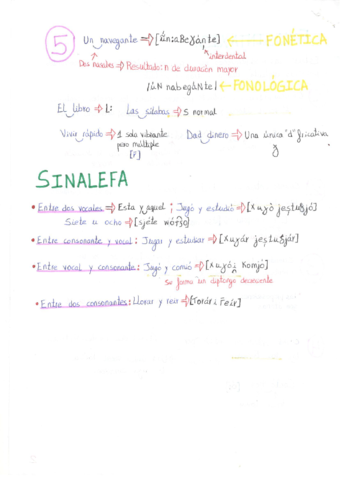 5 Un navegante ⇒ [ún:aβeɣánte] ← FONÉTICA
interdental
Dos nasales ⇒ Resultado: n de duración mayor
/úN nabegáNte/ ← FONOLÓGICA
El libro ⇒ l: Las sílabas ⇒ s normal
Vivir rápido ⇒ 1 sola vibrante pero múltiple [r̄] Dad dinero ⇒ Una única "d" fricativa
SINALEFA
• Entre dos vocales ⇒ Esta y aquel ; Jugó y estudió ⇒
Siete u ocho ⇒
• Entre consonante y vocal: Jugar y estudiar ⇒
• Entre vocal y consonante: Jugó y comió ⇒
Se forma un diptongo decreciente
• Entre dos consonantes: Llorar y reír ⇒